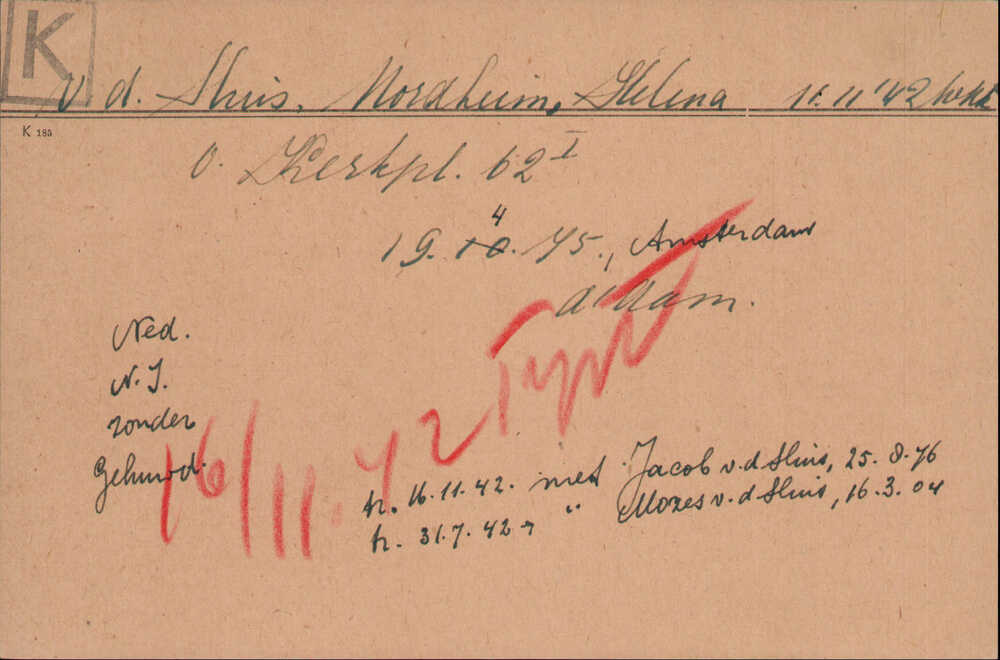 K
v. d. Sluis, Nordheim, Helena 11.11 '42
K 185
O. Kerkpl. 62 I
4
19. 10. 75., Amsterdam
A'dam.
Ned.
N. I.
zonder
Gehuwd.
16/11.42 Typh
tr. 16.11.42. met Jacob v.d Sluis, 25.8.76
tr. 31.7.42 → " Mozes v.d Sluis, 16.3.04